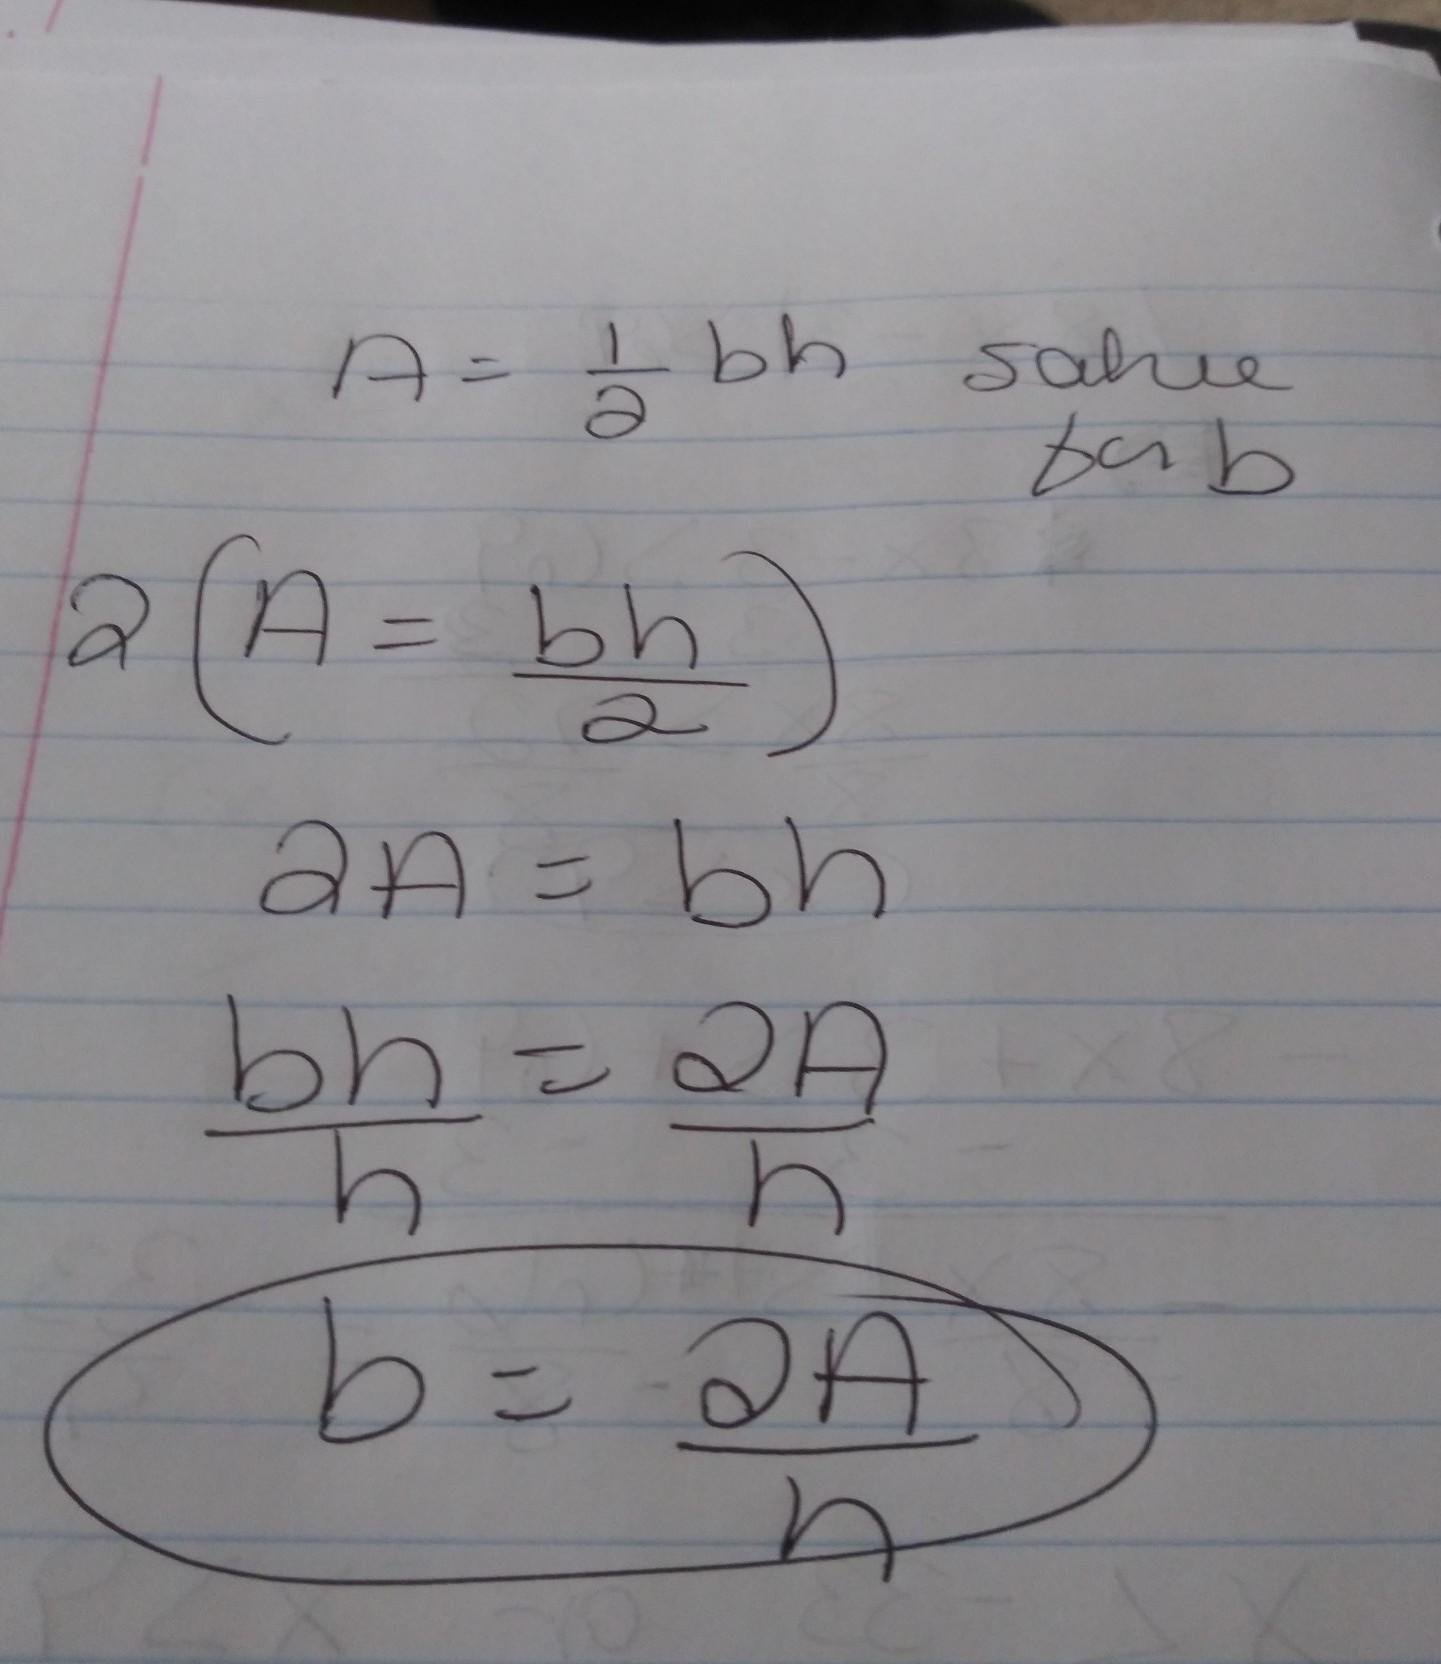 A = 1/2 bh solve
for b
2(A = bh/2)
2A = bh
bh/h = 2A/h
b = 2A/h